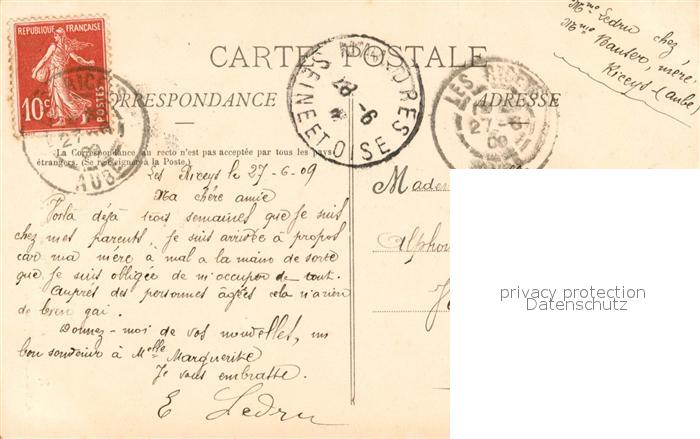 Mme Ledru chez
Mme Bauser, mère,
Riceys (aube)
REPUBLIQUE FRANÇAISE
10c POSTES
CARTE POSTALE
CORRESPONDANCE
ADRESSE
MANDRES
28-6
SEINE ET OISE
LES RICEYS
27-6
09
AUBE
La Correspondance au recto n'est pas acceptée par tous les pays
étrangers. (Se renseigner à la Poste.)
Les Riceys 27-6-09
Ma chère amie
Voilà déjà trois semaines que je suis
chez mes parents, je suis arrivée à propos
car ma mère à mal a la main de sorte
que je suis obligée de m'occuper de tout.
Auprès des personnes âgées cela n'a rien
de bien gai.
Donnez-moi de vos nouvelles, un
bon souvenir à Melle Marguerite
Je vous embrasse.
E Ledru
Madem
Alphon
privacy protection
Datenschutz